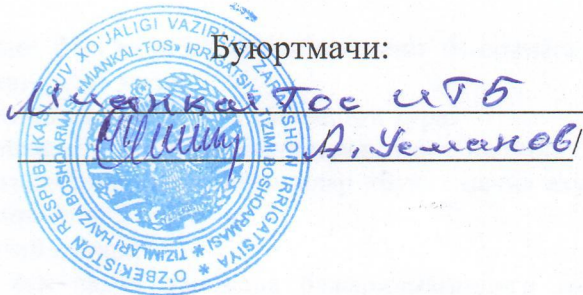 Буюртмачи:
Мианкал Тос ИТБ
А. Усманов/
O'ZBEKISTON RESPUBLIKASI SUV XO'JALIGI VAZIRLIGI ZARAFSHON IRRIGATSIYA TIZIMLARI HAVZA BOSHQARMASI
«MIANKAL-TOS» IRRIGATSIYA TIZIMI BOSHQARMASI